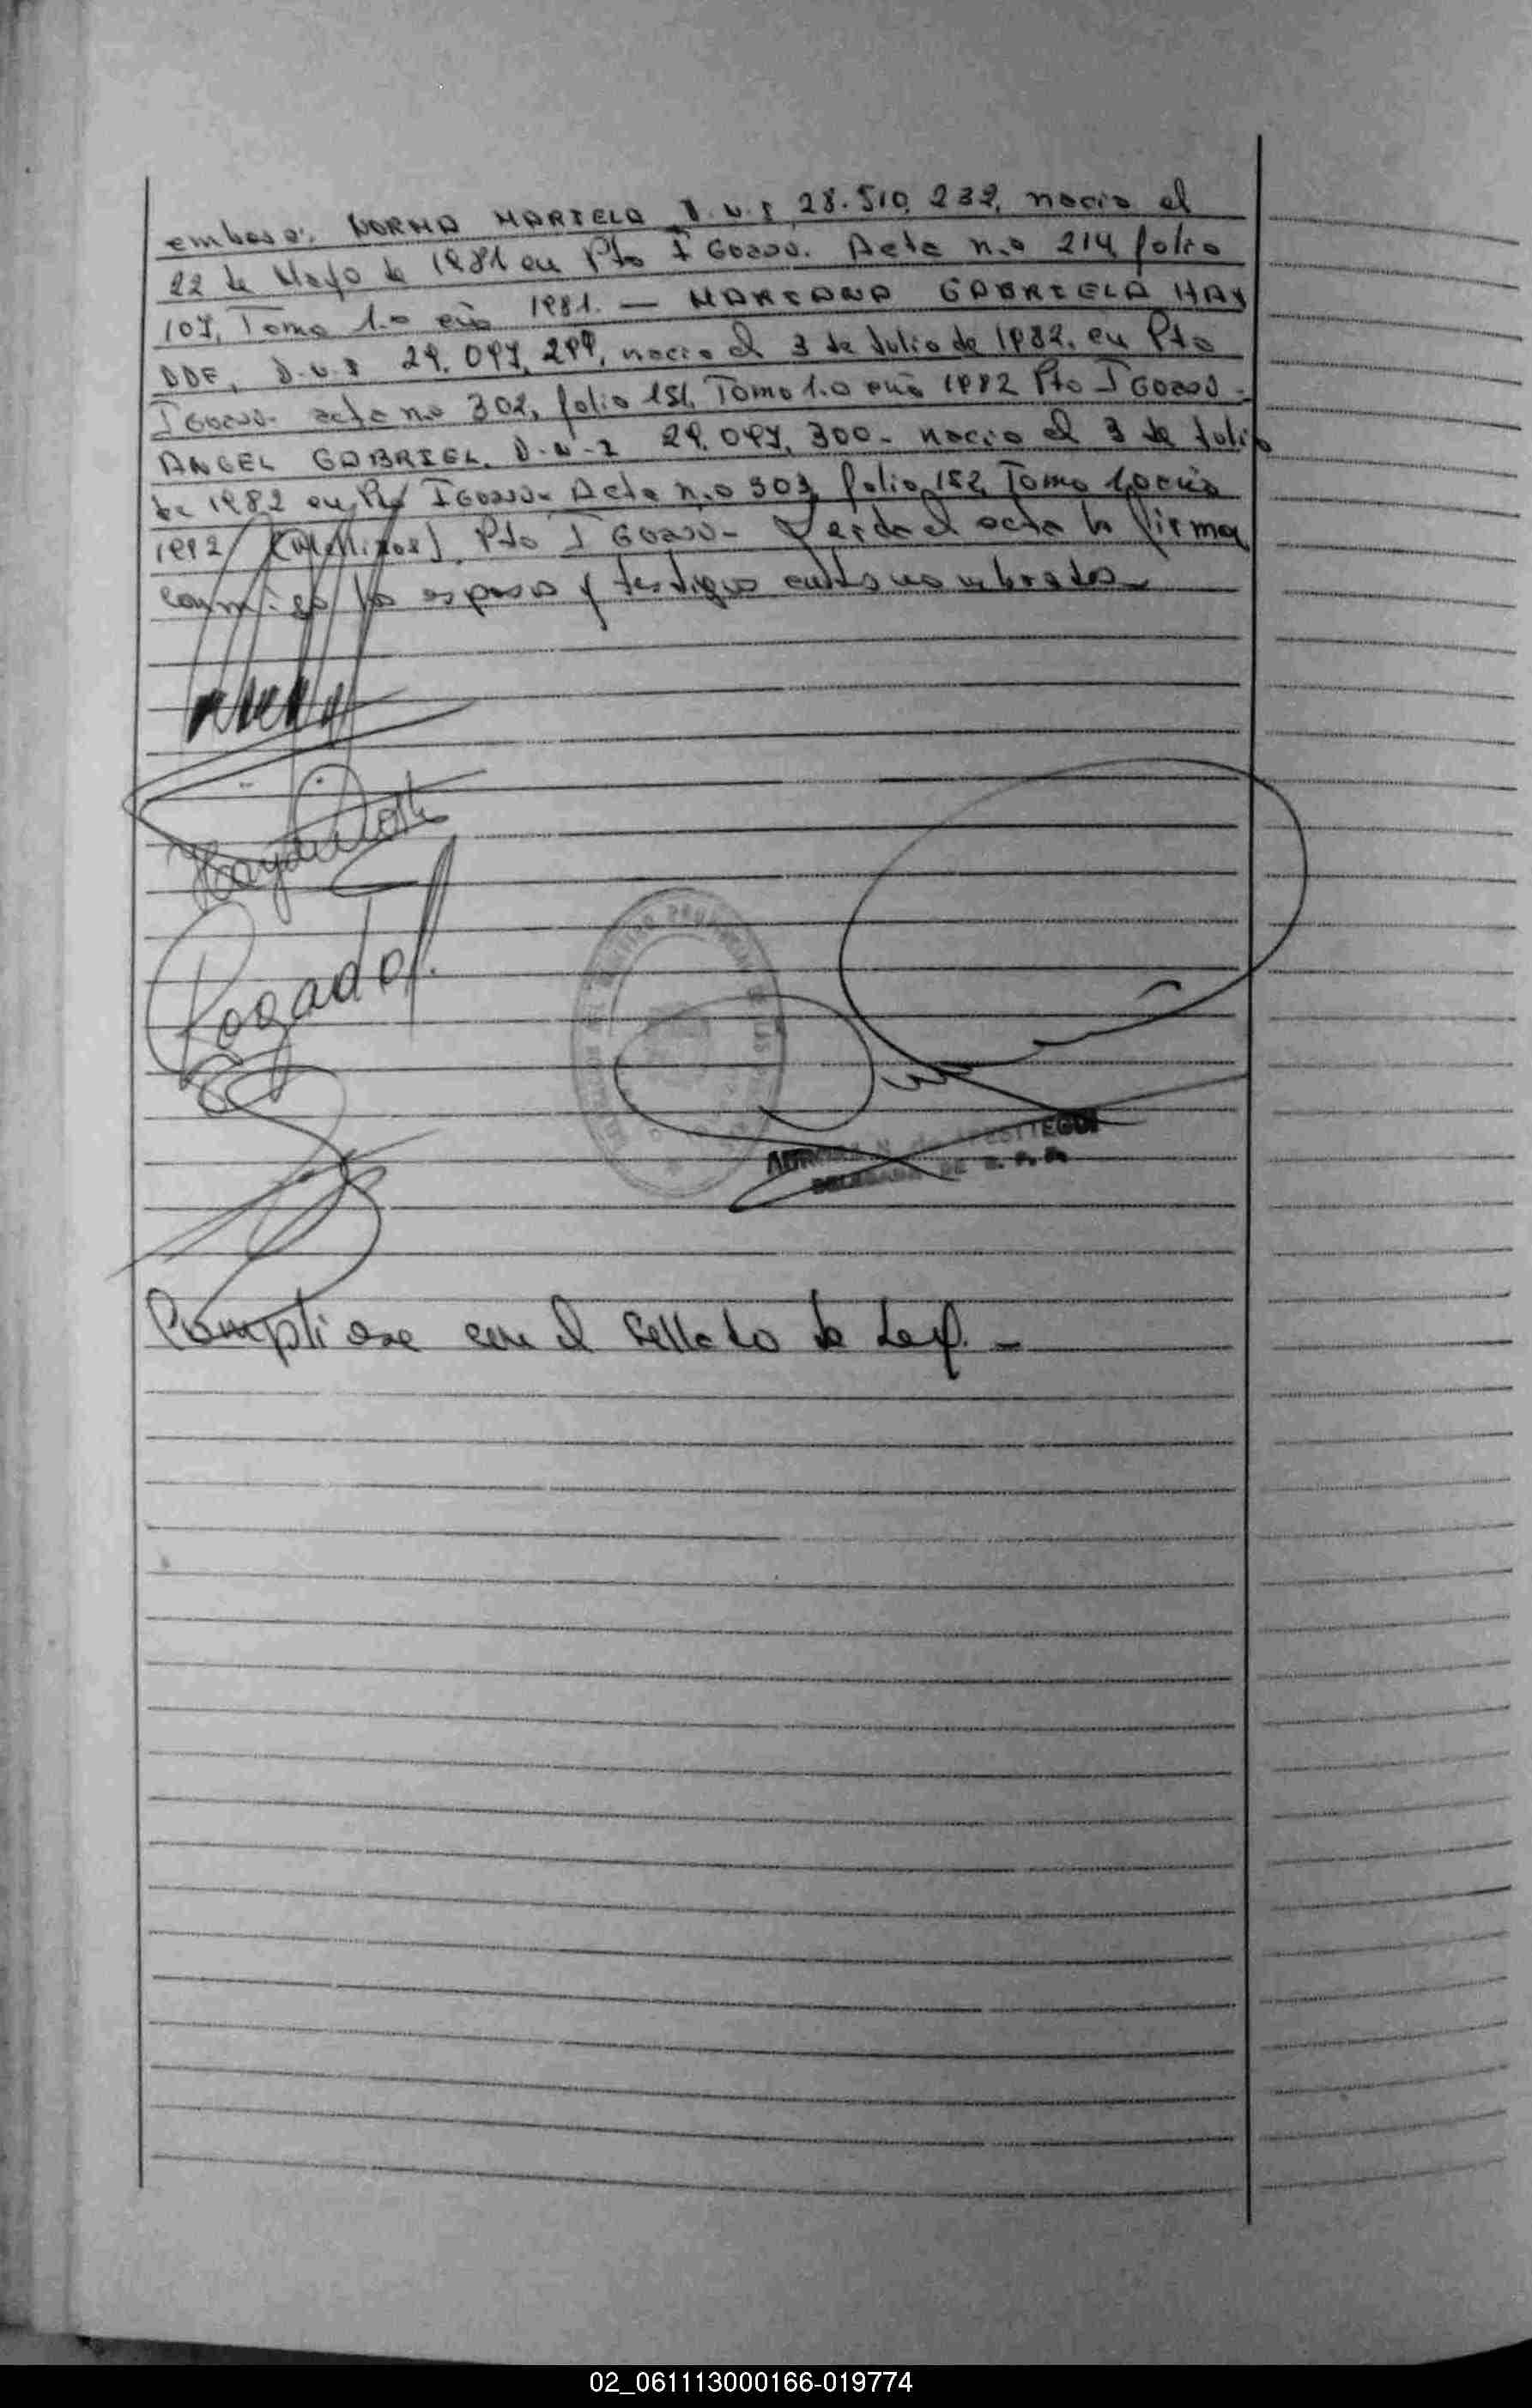 embos o: NORMA MARIELA D.N.I 28.510.232, nacio el
22 de Mayo de 1981 en Pto IGUAZU. Acta n.o 214, folio
107, Tomo 1.o año 1981. — MARIANA GABRIELA HAY
DDE, D.N.I 29.097.299, nacio el 3 de Julio de 1982. en Pto
IGUAZU. acta n.o 302, folio 151, Tomo 1.o año 1982 Pto IGUAZU -
ANGEL GABRIEL. D.N.I 29.097.300 - nacio el 3 de Julio
de 1982 en Pto IGUAZU- Acta n.o 303, folio 152, Tomo 1.o año
1982 (Mellizos). Pto IGUAZU- Leida el acta la firma
conmigo los esposos y testigos antes nombrados -
Rogado
DE
Cumpliose con el sellado de Ley. -
02_061113000166-019774